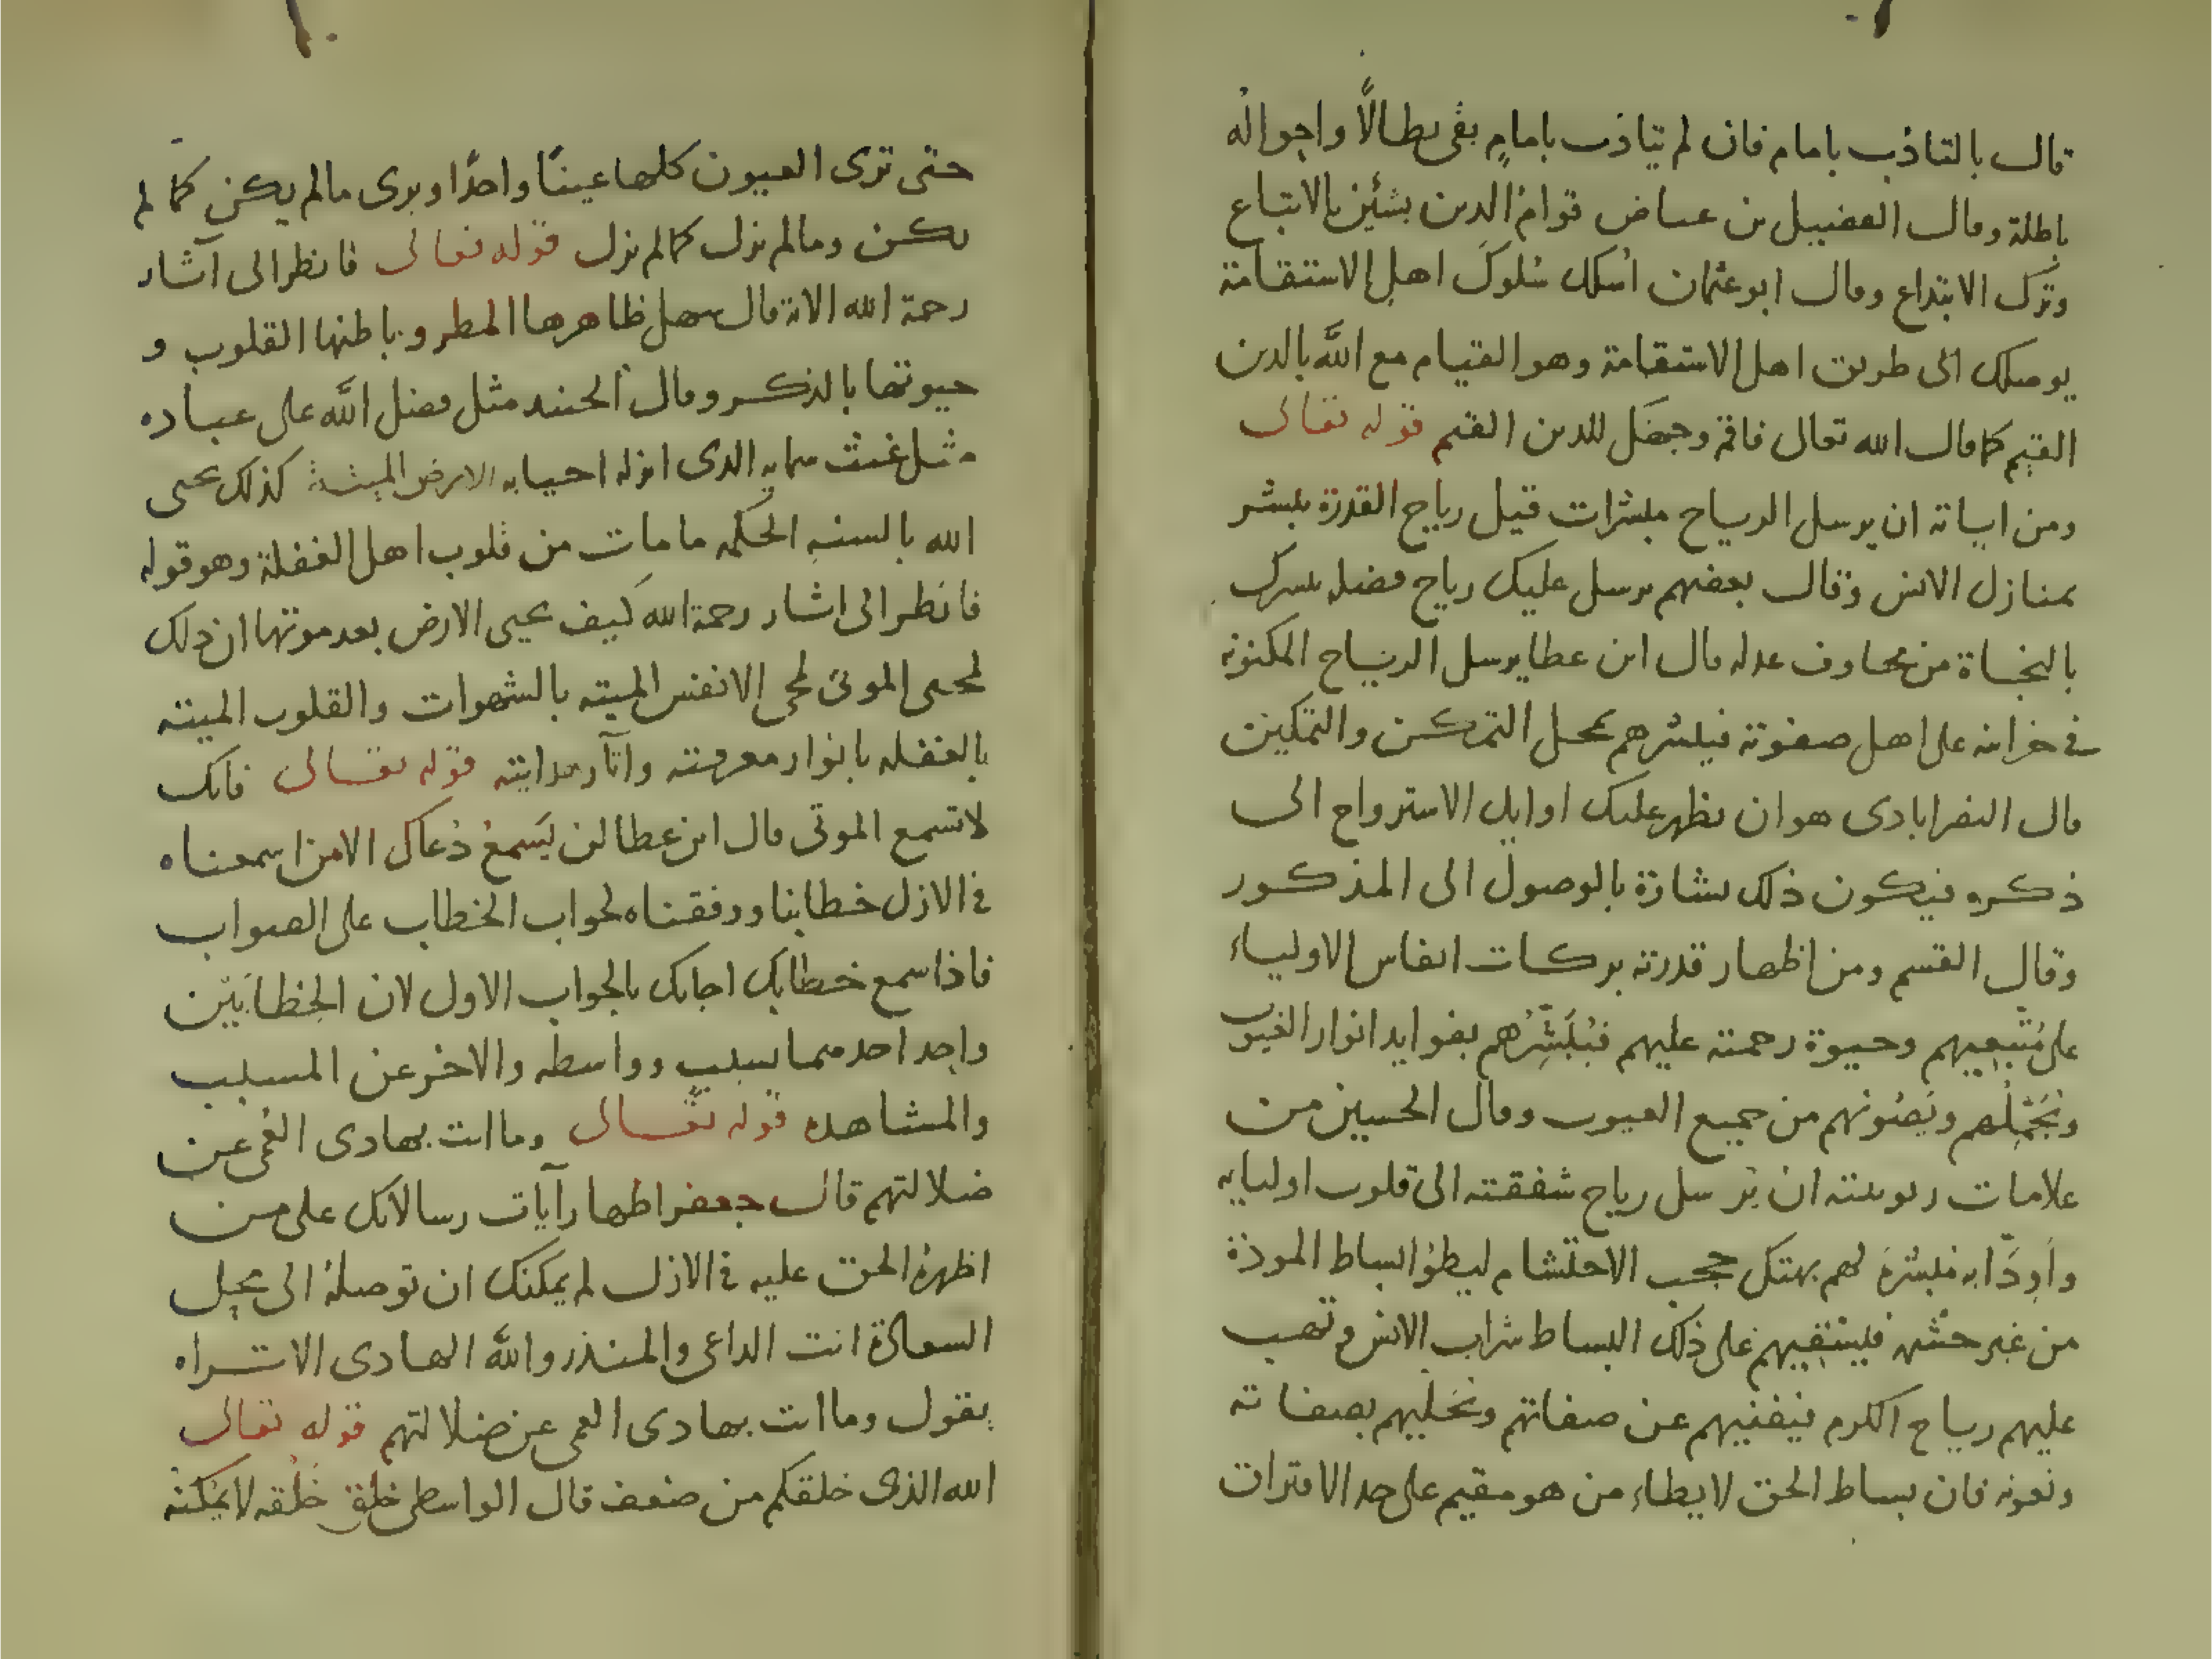 قال بالتأدب بامام فان لم يتأدب بامامٍ بقى بطالاً واحواله
باطلة وقال الفضيل بن عياض قوام الدين بشيئين بالاتباع
وترك الابتداع وقال ابو عثمان اسلك سلوك اهل الاستقامة
يوصلك الى طريق اهل الاستقامة وهو القيام مع اللّه بالدين
القيم كما قال الله تعالى فاقم وجهك للدين القيم قوله تعالى
ومن اياته ان يرسل الرياح مبشرات قيل رياح القدرة يبشر
بمنازل الانس وقال بعضهم يرسل عليك رياح فضله يبشرك
بالنجاة من مخاوف عدله قال ابن عطا يرسل الرياح المكنونة
فى خزاينه على اهل صفوته فيبشرهم بمحل التمكن والتمكين
قال النصرابادى هو ان يظهر عليك اوايل الاسترواح الى
ذكره فيكون ذلك بشارة بالوصول الى المذكور
وقال القسم ومن اظهار قدرته بركات انفاس الاولياء
على متبعيهم وحيوة رحمته عليهم فيُبَشِّرُهم بفوايد انوار الغيوب
ويصونهم من جميع العيوب وقال الحسين من
علامات ربوبيته ان يرسل رياح شفقته الى قلوب اوليايه
واودّايه مبشرة لهم بهتك حجب الاحتشام ليطؤا بساط المودة
من غير حشمه فيسقيهم على ذلك البساط شراب الانس وتهب
عليهم رياح الكرم فيفنيهم عن صفاتهم ويحليهم بصفاته
ونعوته فان بساط الحق لا يطاء من هو مقيم على حد الافتراق
حتى ترى العيون كلها عينًا واحدًا ويرى مالم يكن كما لم
يكن ومالم يزل كما لم يزل قوله تعالى فانظر الى آثار
رحمة الله الاية قال سهل ظاهرها المطر وباطنها القلوب و
حيوتها بالذكر وقال الجنيد مثل فضل اللّه على عباده
مثل غيث سمايه الذى انزله احيا به الارض الميتة كذلك يحيى
الله بالسنه الحكمه ما مات من قلوب اهل الغفلة وهو قوله
فانظر الى اثار رحمة الله كيف يحيى الارض بعد موتها ان ذلك
لمحيى الموتى لمحى الانفس الميته بالشهوات والقلوب الميته
بالغفله بانوار معرفته واثار هدايته قوله تعالى فانك
لا تسمع الموتى قال ابن عطا لن يَسمع دُعاك الا من اسمعناه
فى الازل خطابنا ووفقناه لجواب الخطاب على الصواب
فاذا سمع خطابك اجابك بالجواب الاول لان الخطابَين
واحد احدهما بسبب وواسطه والاخر عن المسبب
والمشاهده قوله تعالى وما انت بهادى العمى عن
ضلالتهم قال جعفر اظهار آيات رسالاتك على من
اظهره الحق عليه فى الازل لم يمكنك ان توصله الى محل
السعادة انت الداعى والمنذر واللّه الهادى الا تراه
يقول وما انت بهادى العمى عن ضلالتهم قوله تعالى
الله الذى خلقكم من ضعف قال الواسطى خلق خلقه لا يمكنه